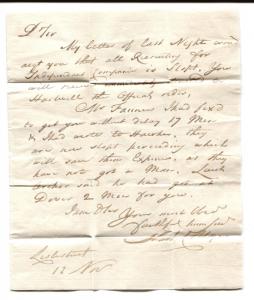 D Sir
My Letter of Last Night
acqt you that all Recruiting for
Independent Companies is Stopt, You
will have
Harwell the Official order,
Mr had fixd
to get you without delay 17 Men
& Had wrote to Harden, they
are now stopt proceeding which
will save them Expence, as they
have not got a Man, Lieut
said he had got at
Dover 2 Men for you.
I am D Sir
Your most Obed
faithful humble
12 Nov